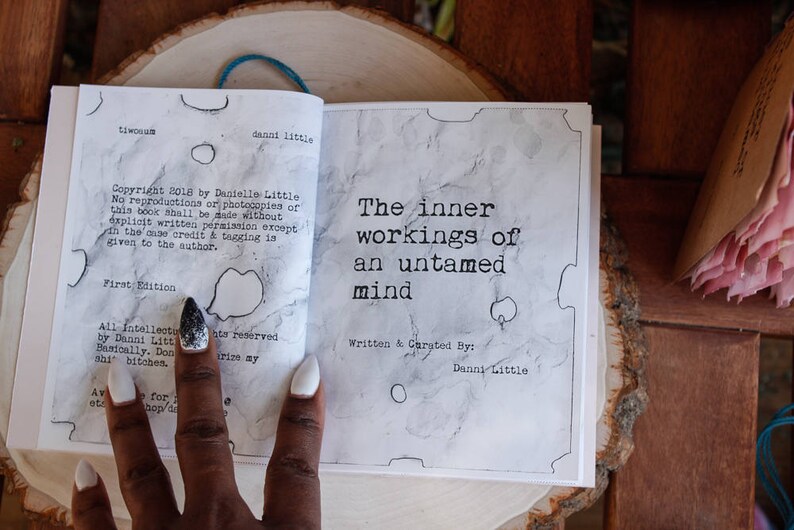 tiwoaum danni little
Copyright 2018 by Danielle Little
No reproductions or photocopies of
this book shall be made without
explicit written permission except
in the case credit & tagging is
given to the author.
First Edition
All Intellectu hts reserved
by Danni Litt
Basically. Don arize my
shi bitches.
for p
hop/da
The inner
workings of
an untamed
mind
Written & Curated By:
Danni Little